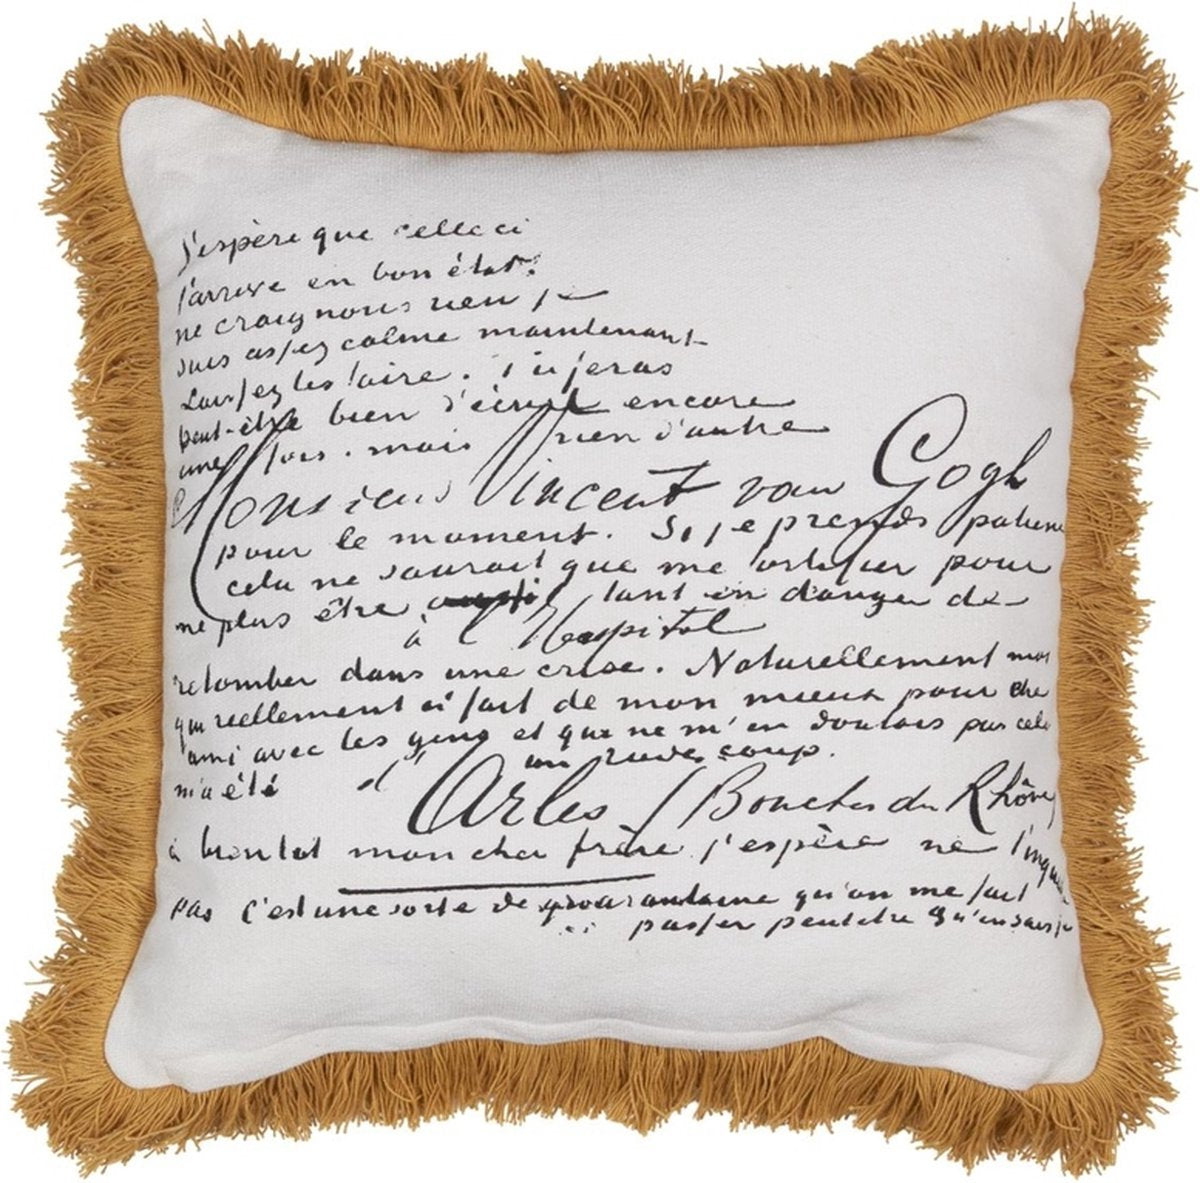 j'espère que celle ci
j'arrive en bon état.
ne craignons rien je
suis assez calme maintenant
Laissez les faire. Tu feras
peut-être bien d'écrire encore
une fois. mais rien d'autre
Monsieur Vincent van Gogh
pour le moment. Si je prends patience
cela ne saurait que me fortifier pour
ne plus être tant en danger de
à l'Hospital
retomber dans une crise. Naturellement moi
qui reellement ai fait de mon mieux pour être
ami avec les gens et que ne m'en doutais pas cela
m'a été un rude coup.
d'Arles / Bouches du Rhône
à bientot mon cher frère j'espère ne
pas c'est une sorte de quarantaine qu'on me fait
passer peut etre qu'en sais je